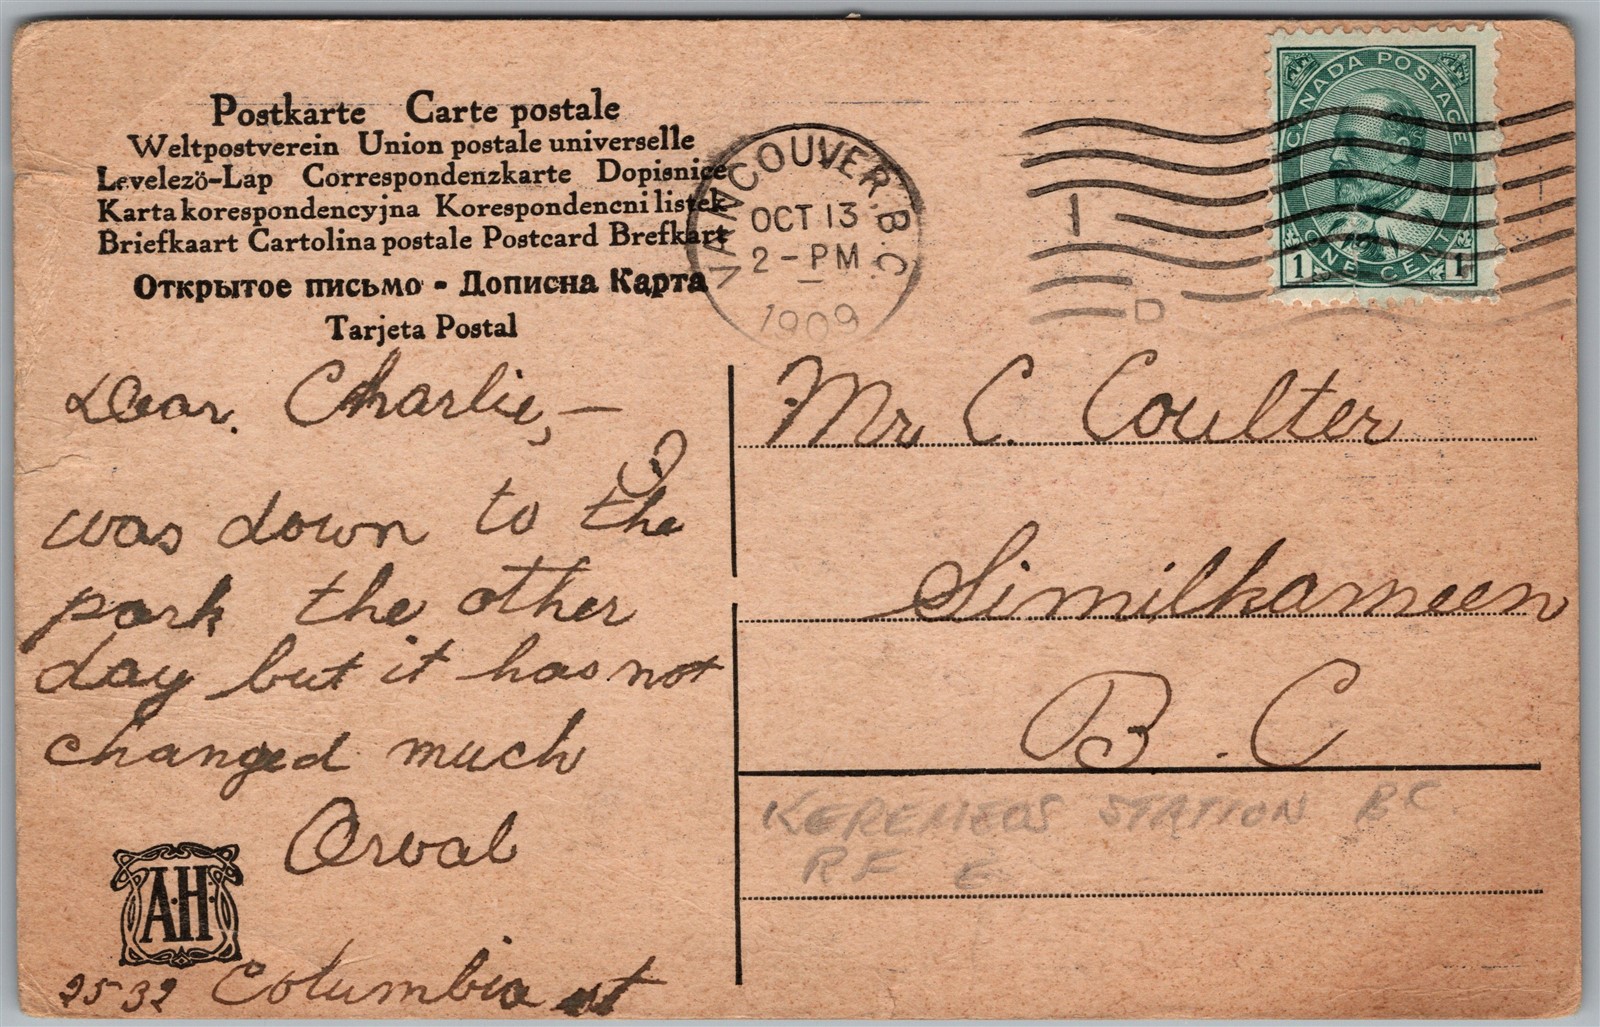 Postkarte Carte postale
Weltpostverein Union postale universelle
Levelezö-Lap Correspondenzkarte Dopisnice
Karta korespondencyjna Korespondencni listek
Briefkaart Cartolina postale Postcard Brefkart
Открытое письмо - Дописна Карта
Tarjeta Postal
VANCOUVER. B.C.
OCT 13
2 - PM
1909
1
D
CANADA POSTAGE
1 ONE CENT 1
Dear. Charlie, —
I
was down to the
park the other
day but it has not
changed much
Orval
A·H·
2532 Columbia st
Mr C. Coulter
Similkameen
B. C
KEREMEOS STATION BC.
RF